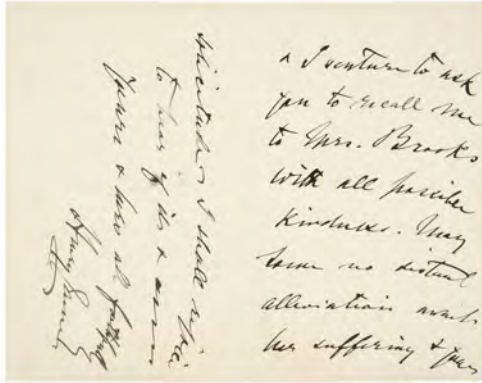 & I venture to ask
you to recall me
to Mrs. Brooks
with all possible
kindness. May
some no distant
alleviation await
her suffering & your
solicitude. I shall rejoice
to hear of it &
Yours & hers all faithfully
Henry James